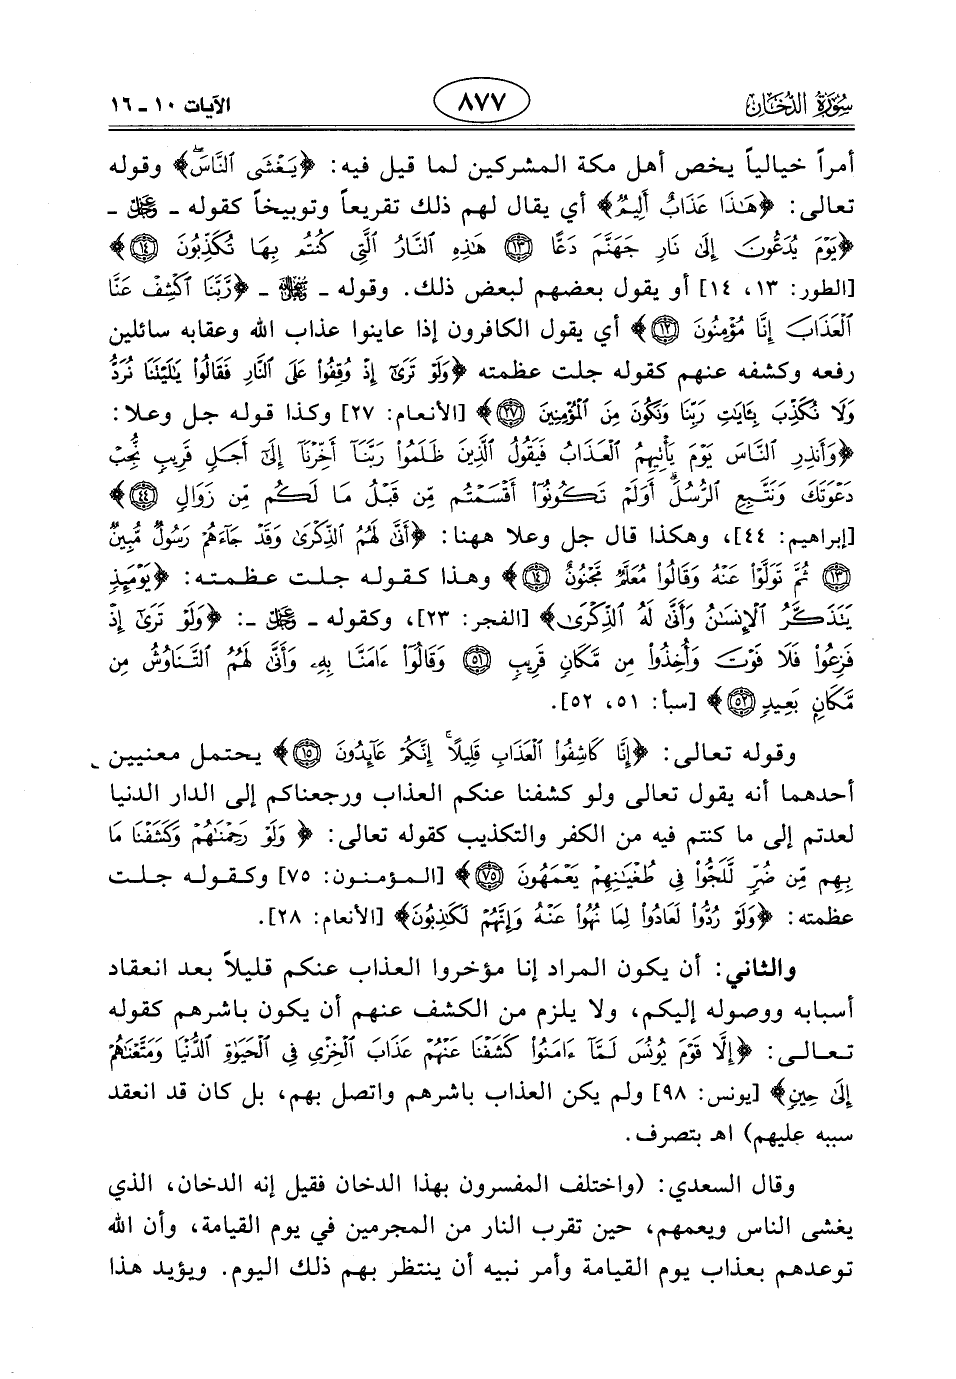 سورة الدخان ٨٧٧ الآيات ١٠ - ١٦
أمراً خيالياً يخص أهل مكة المشركين لما قيل فيه: ﴿يَغْشَى النَّاسَ﴾ وقوله
تعالى: ﴿هَٰذَا عَذَابٌ أَلِيمٌ﴾ أي يقال لهم ذلك تقريعاً وتوبيخاً كقوله - ﷻ -
﴿يَوْمَ يُدَعُّونَ إِلَىٰ نَارِ جَهَنَّمَ دَعًّا ١٣ هَٰذِهِ النَّارُ الَّتِي كُنتُم بِهَا تُكَذِّبُونَ ١٤﴾
[الطور: ١٣، ١٤] أو يقول بعضهم لبعض ذلك. وقوله - ﷻ - ﴿رَّبَّنَا اكْشِفْ عَنَّا
الْعَذَابَ إِنَّا مُؤْمِنُونَ ١٢﴾ أي يقول الكافرون إذا عاينوا عذاب الله وعقابه سائلين
رفعه وكشفه عنهم كقوله جلت عظمته ﴿وَلَوْ تَرَىٰ إِذْ وُقِفُوا عَلَى النَّارِ فَقَالُوا يَٰلَيْتَنَا نُرَدُّ
وَلَا نُكَذِّبَ بِـَٔايَٰتِ رَبِّنَا وَنَكُونَ مِنَ الْمُؤْمِنِينَ ٢٧﴾ [الأنعام: ٢٧] وكذا قوله جل وعلا:
﴿وَأَنذِرِ النَّاسَ يَوْمَ يَأْتِيهِمُ الْعَذَابُ فَيَقُولُ الَّذِينَ ظَلَمُوا رَبَّنَا أَخِّرْنَا إِلَىٰ أَجَلٍ قَرِيبٍ نُّجِبْ
دَعْوَتَكَ وَنَتَّبِعِ الرُّسُلَ أَوَلَمْ تَكُونُوا أَقْسَمْتُم مِّن قَبْلُ مَا لَكُم مِّن زَوَالٍ ٤٤﴾
[إبراهيم: ٤٤]، وهكذا قال جل وعلا ههنا: ﴿أَنَّىٰ لَهُمُ الذِّكْرَىٰ وَقَدْ جَاءَهُمْ رَسُولٌ مُّبِينٌ
١٣ ثُمَّ تَوَلَّوْا عَنْهُ وَقَالُوا مُعَلَّمٌ مَّجْنُونٌ ١٤﴾ وهذا كقوله جلت عظمته: ﴿يَوْمَئِذٍ
يَتَذَكَّرُ الْإِنسَٰنُ وَأَنَّىٰ لَهُ الذِّكْرَىٰ﴾ [الفجر: ٢٣]، وكقوله - ﷻ -: ﴿وَلَوْ تَرَىٰ إِذْ
فَزِعُوا فَلَا فَوْتَ وَأُخِذُوا مِن مَّكَانٍ قَرِيبٍ ٥١ وَقَالُوا ءَامَنَّا بِهِۦ وَأَنَّىٰ لَهُمُ التَّنَاوُشُ مِن
مَّكَانٍ بَعِيدٍ ٥٢﴾ [سبأ: ٥١، ٥٢].
وقوله تعالى: ﴿إِنَّا كَاشِفُوا الْعَذَابِ قَلِيلًا إِنَّكُمْ عَائِدُونَ ١٥﴾ يحتمل معنيين
أحدهما أنه يقول تعالى ولو كشفنا عنكم العذاب ورجعناكم إلى الدار الدنيا
لعدتم إلى ما كنتم فيه من الكفر والتكذيب كقوله تعالى: ﴿وَلَوْ رَحِمْنَٰهُمْ وَكَشَفْنَا مَا
بِهِم مِّن ضُرٍّ لَّلَجُّوا فِي طُغْيَٰنِهِمْ يَعْمَهُونَ ٧٥﴾ [المؤمنون: ٧٥] وكقوله جلت
عظمته: ﴿وَلَوْ رُدُّوا لَعَادُوا لِمَا نُهُوا عَنْهُ وَإِنَّهُمْ لَكَٰذِبُونَ﴾ [الأنعام: ٢٨].
والثاني: أن يكون المراد إنا مؤخروا العذاب عنكم قليلاً بعد انعقاد
أسبابه ووصوله إليكم، ولا يلزم من الكشف عنهم أن يكون باشرهم كقوله
تعالى: ﴿إِلَّا قَوْمَ يُونُسَ لَمَّا ءَامَنُوا كَشَفْنَا عَنْهُمْ عَذَابَ الْخِزْيِ فِي الْحَيَوٰةِ الدُّنْيَا وَمَتَّعْنَٰهُمْ
إِلَىٰ حِينٍ﴾ [يونس: ٩٨] ولم يكن العذاب باشرهم واتصل بهم، بل كان قد انعقد
سببه عليهم) اهـ بتصرف.
وقال السعدي: (واختلف المفسرون بهذا الدخان فقيل إنه الدخان، الذي
يغشى الناس ويعمهم، حين تقرب النار من المجرمين في يوم القيامة، وأن الله
توعدهم بعذاب يوم القيامة وأمر نبيه أن ينتظر بهم ذلك اليوم. ويؤيد هذا